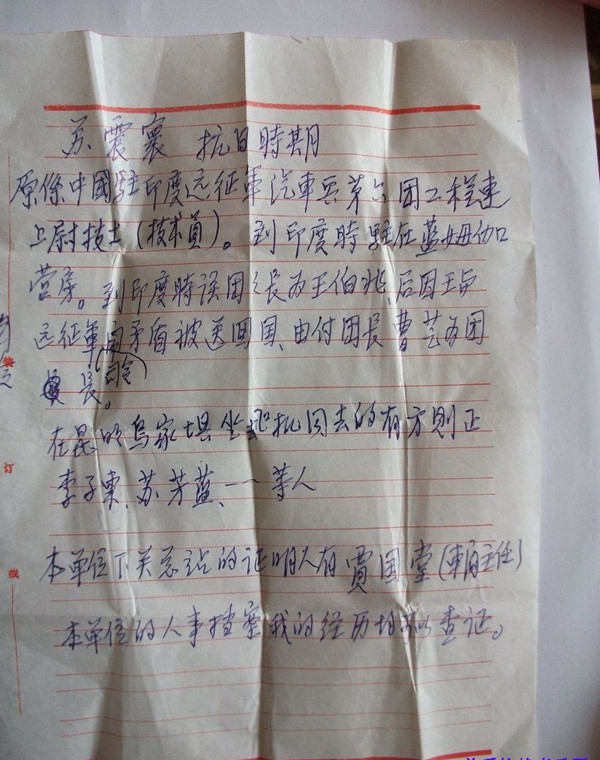 苏震寰 抗日時期
原係中國駐印度远征軍汽車兵第六团工程連
上尉技士(技术員)。到印度時駐在蓝姆伽
营房。到印度時该团团长为王伯兆,后因王与
远征軍有矛盾被送回国,由付团長曹艺为团
長。
司令
在昆明乌家壩坐飞机同去的有方則正
李子東、苏芳蓝、一一等人
本单位下关总站的证明人有賈国堂(朝主任)
本单位的人事档案我的经历均可以查证。
装
订
线